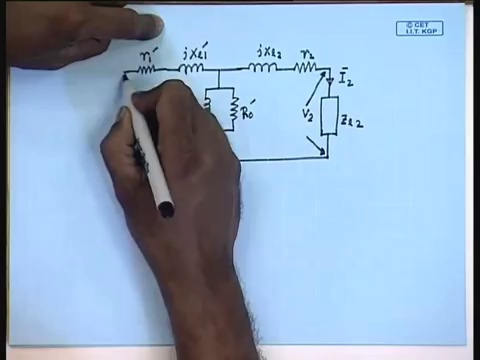 © CET
I.I.T. KGP
r₁′ jXₗ₁′ jXₗ₂ r₂
Ī₂
R₀′ V₂ Zₗ₂